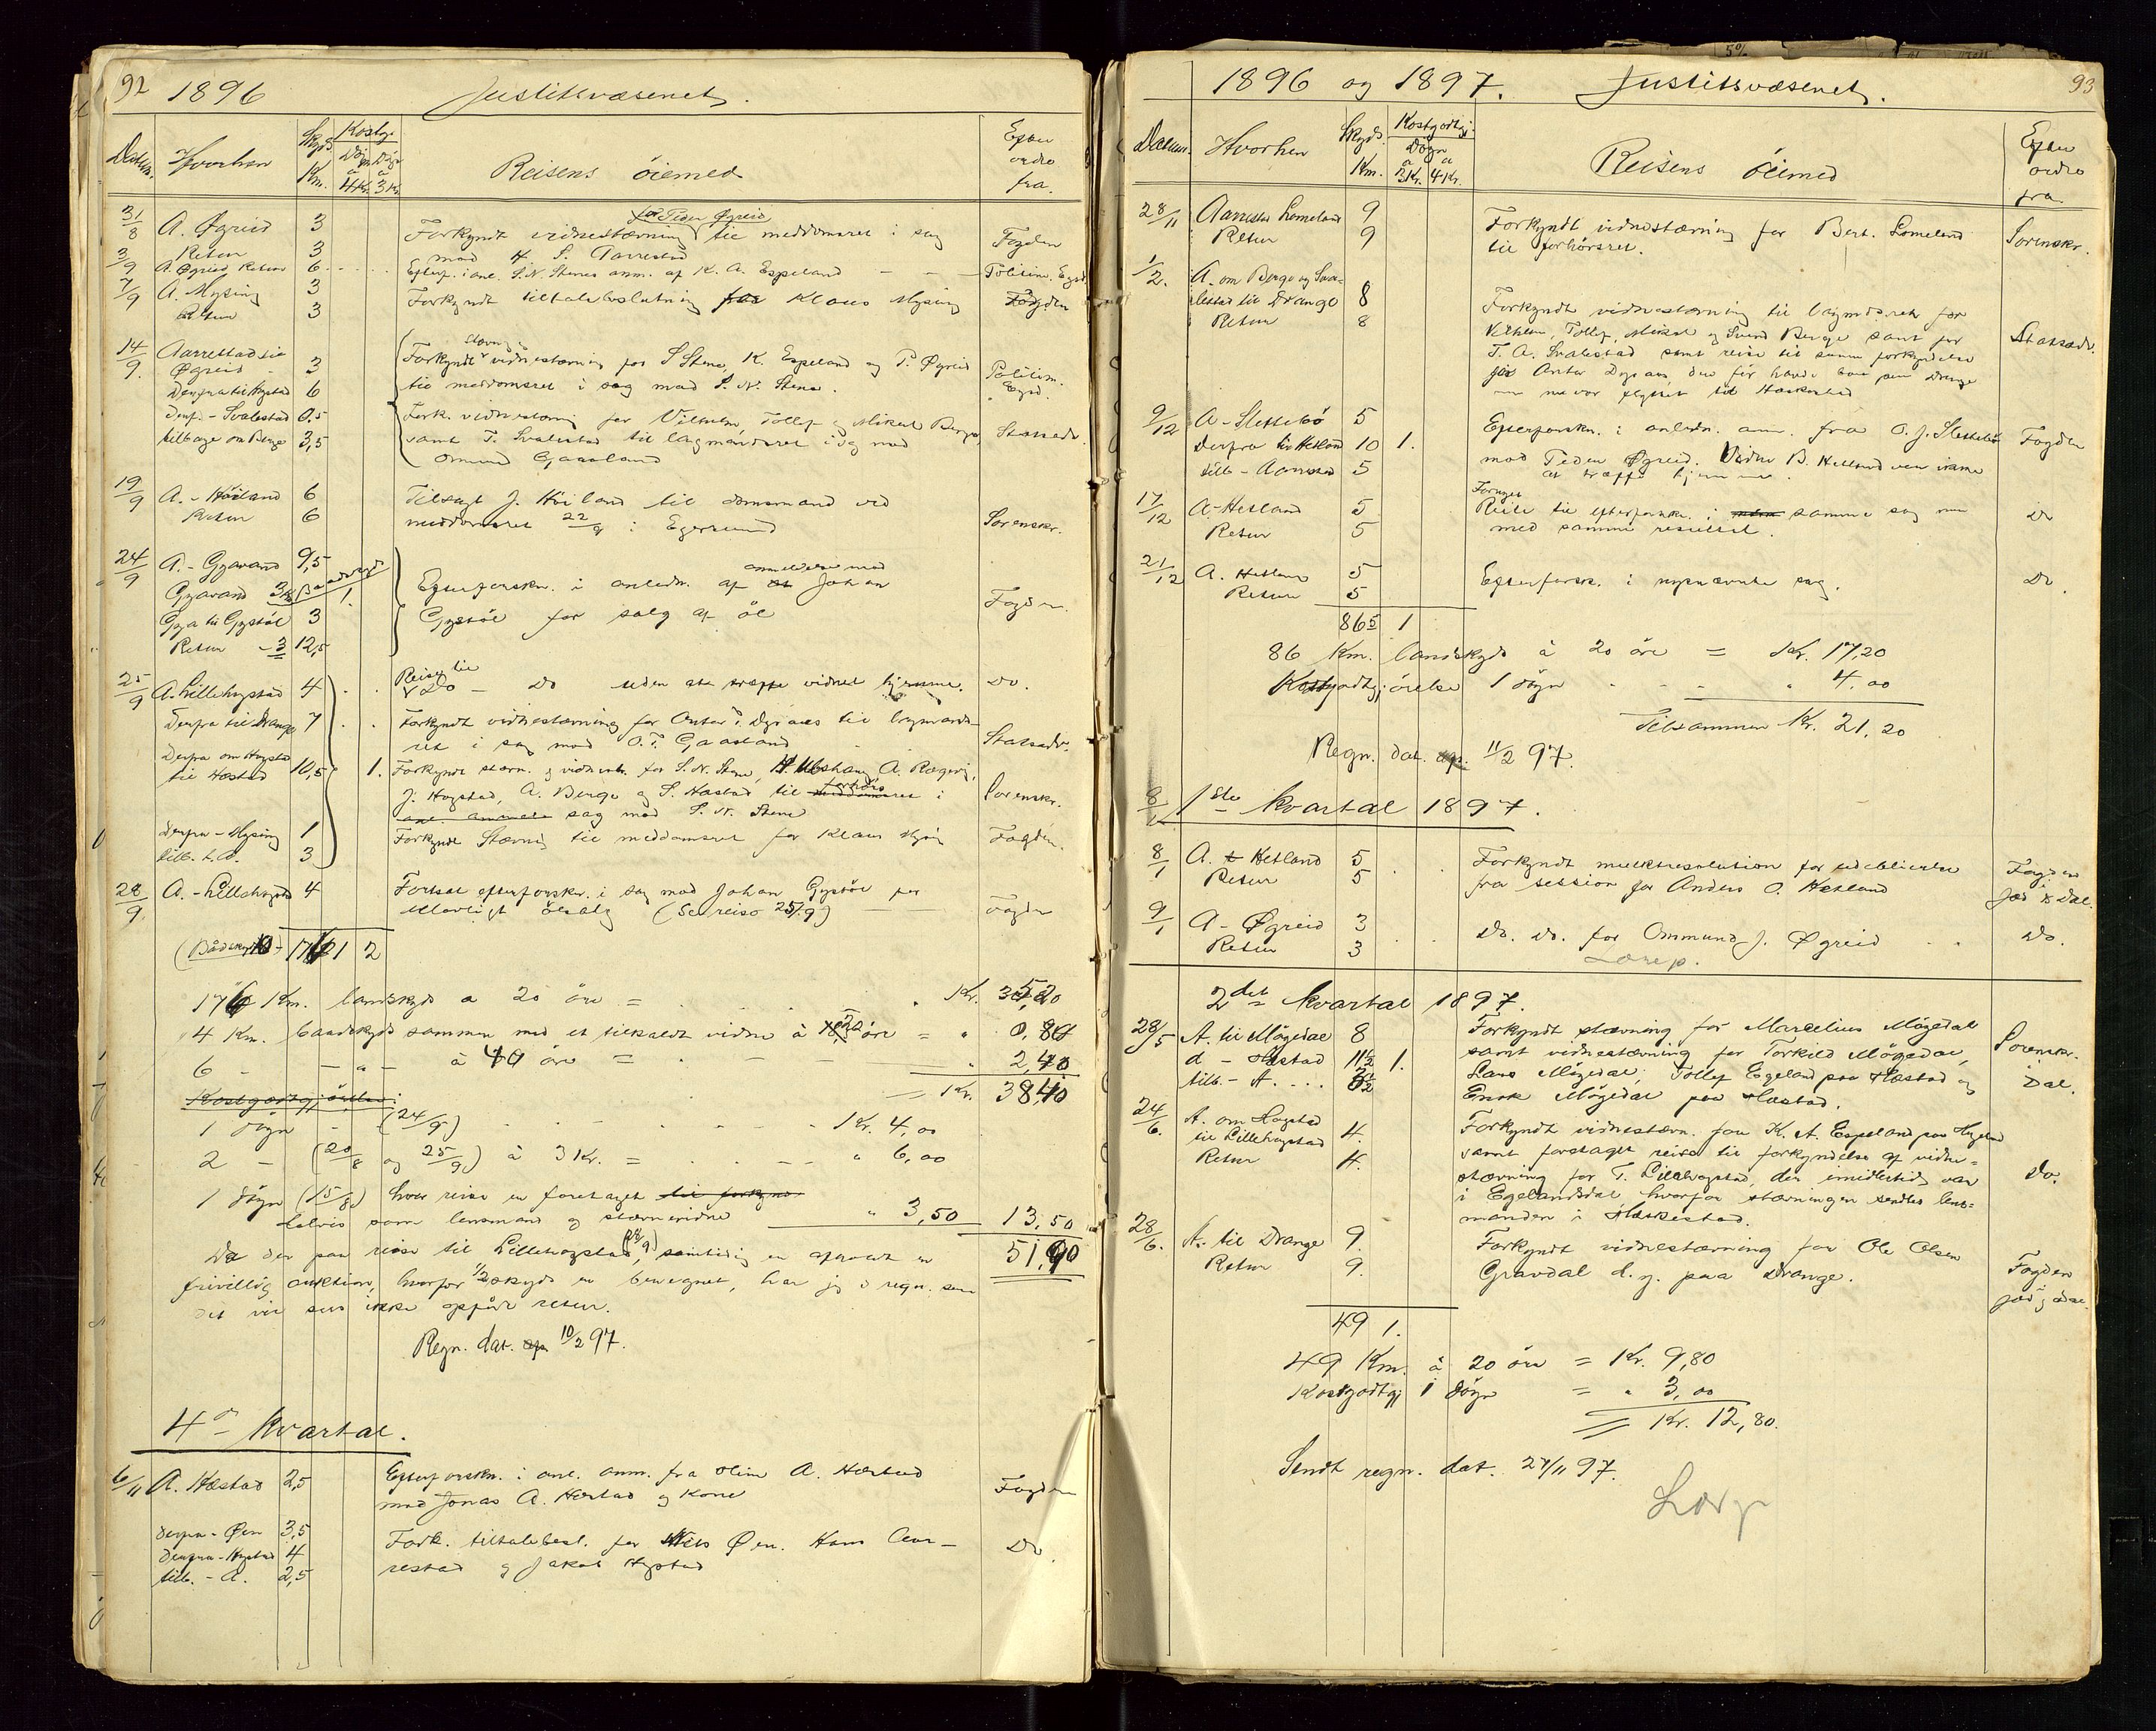 92 1896 Justitsvæsenet.
Datum. Hvorhen Skyds Km. Kostg. Døgn à 4 Kr. Døgn à 3 Kr. Reisens øiemed Efter ordre fra.
31/8 A. Øgreid 3 Forkyndt vidnestævning for Peder Øgreid til meddomsret i sag Fogden
Retur 3 mod H. S. Aarrestad
3/9 A. Øgreid Retur 6 Efterf. i anl. S. N. Stenes anm. af K. A. Espeland Politim. Egsd.
7/9 A. Mysing 3 Forkyndt tiltalebeslutning for Klaus Mysing Fogden
Retur 3
14/9. Aarrestad til
Øgreid 3 Forkyndt stævn. vidnestævning for S. Stene, K. Espeland og P. Øgreid Politim.
Derfra til Hystad 6 til meddomsret i sag mod S. N. Stene. Egsd.
Derf. - Svalestad 0,5 Fork. vidnestævn. for Vilhelm, Tollef og Mikal Berge, Statsadv.
tilbage om Berge 3,5 samt T. Svalestad til lagmandsret i sag mod
Omund Gaasland
19/9 A. - Høiland 6 Tilsagt J. Høiland til domsmand ved
Retur 6 meddomsret 22/9 i Egersund Sorenskr.
24/9 A. - Gyavand 9,5 anmeldelse mod
Gyavand 3 Km Baadskyds 1. Efterforskn. i anledn. af Johan
Gya til Gystøl 3 Gystøl for salg af øl Fogden.
Retur - 3 12,5
25/9 A. Lillehystad 4 Reise til Do - Do uden at træffe vidnet hjemme. Do.
Derfra til Drange 7 Forkyndt vidnestævning for Antor Dypaas til lagmands-
ret i sag mod O. T. Gaasland Statsadv.
Derfra om Hystad
til Hæstad 10,5 1. Forkyndt stævn. og vidnest. for S. N. Stene, A. Rægevig,
J. Hogstad, A. Berge og S. Hæstad til forhørs meddomsret i Sorenskr.
anl. anmeld. sag mod S. N. Stene
Derfra - Mysing 1 Forkyndt Stævning til meddomsret for Klaus Mysing Fogden.
tilb. t. A. 3
28/9 A. - Lillehystad 4 Fortsat efterforskn. i sag mod Johan Gystøl for
ulovligt ølsalg (Se reise 25/9) Fogden
(Bådskyds 10 - 176 1 2
176 Km. landskyds a 20 öre = Kr. 35,20
4 Km. baadskyds sammen med et tilkaldt vidne à 20 öre = " 0,80
6 - - " - à 40 öre = " 2,40
Kostgodtgjörelse: = Kr. 38,40
1 døgn (24/9) 1 Kr. 4,00
2 - (28/8 og 25/9) à 3 Kr. = " 6,00
1 døgn (15/8) hver reise er foretaget til forkynd
delvis som lensmand og stævnevidne " 3,50 13,50
Da der paa reise til Lillehogstad (28/9), samtidig er afgjordt en 51,90
frivillig auktion, hvorfor 1/2 skyds er beregnet, har jeg i regn. som
det vil sees ikke opført retur.
Regn. dat. 10/2 97.
4de Kvartal.
6/11 A. Hæstad 2,5 Efterforskn. i anl. anm. fra Oline A. Hæstad
mod Jonas A. Hæstad og Kone Fogden
Derfra - Øen 3,5 Fork. tiltalebesl. for Nils Øen. Hans Aar- Do.
Derfra - Hystad 4 restad og Jakob Hystad
tilb. - A. 2,5
1896 og 1897. Justitsvæsenet. 93
Datum. Hvorhen Skyds. Km. Kostgodtgj. Døgn à 3 Kr. à 4 Kr. Reisens øiemed Efter ordre fra
28/11 Aarrestad Lomeland 9 Forkyndt vidnestævning for Bert. Lomeland Sorenskr.
Retur 9 til forhørsret.
1/12. A. om Berge og Sva-
lestad til Drange 8 Forkyndt vidnestævning til lagmdsret for
Retur 8 Vilhelm, Tollef, Mikal og Svend Berge samt for Statsadv.
T. A. Svalestad samt reise til samme forkyndelse
for Antor Dypaas, der før havde boet paa Drange
men nu var flyttet til Haskestad
9/12 A - Slettebö 5 Efterforskn. i anledn. anm. fra O. J. Slettebö Fogden
Derfra til Hetland 10 1. mod Peder Øgreid. Vidne B. Hetland var ikke
tilb - Aarrestad 5 at træffe hjemme.
17/12 A - Hetland 5 Fornyet Reise til efterforskn. i samme sag Do
Retur 5 med samme resultat.
21/12 A. Hetland 5 Efterforsk. i nysnævnte sag. Do.
Retur 5
86 5 1
86 Km. landskyds à 20 öre = Kr. 17,20
Kostgodtgjörelse 1 døgn " 4,00
Tilsammen Kr. 21,20
Regn. dat. 11/2 97.
1ste kvartal 1897.
8/1 A. t Hetland 5 Forkyndt mulktresolution for udeblivelse Fogden
Retur 5 fra session for Anders O. Hetland Jæd. & Dal.
9/1 A - Øgreid 3 Do. Do. for Ommund J. Øgreid Do.
Retur 3
2det kvartal 1897.
28/5 A. til Mögedal 8 Forkyndt stævning for Marcelius Mögedal Sorenskr.
d - Hæstad 11 1/2 1. samt vidnestævning for Torkild Mögedal, Dal.
tilb - A. 3 1/2 Lars Mögedal, Tollef Egeland paa Hæstad og
Enok Mögedal paa Hæstad.
24/6. A. om Hogstad Forkyndt vidnestævn. for K. A. Espeland paa Hogstad
til Lillehogstad 4. samt foretaget reise til forkyndelse af vidne-
Retur 4. stævning for T. Lillehogstad, der imidlertid var Do.
i Egelandsdal hvorfor stævningen sendtes lens-
manden i Hæskestad.
28/6. A. til Drange 9. Forkyndt vidnestævning for Ole Olsen
Retur 9. Gravdal d. y. paa Drange. Fogden
Jæd. & Dal.
49 1.
49 Km. à 20 öre = Kr. 9,80
Kostgodtgj 1 døgn = " 3,00
= Kr. 12,80.
Sendt regn. dat. 27/11 97.